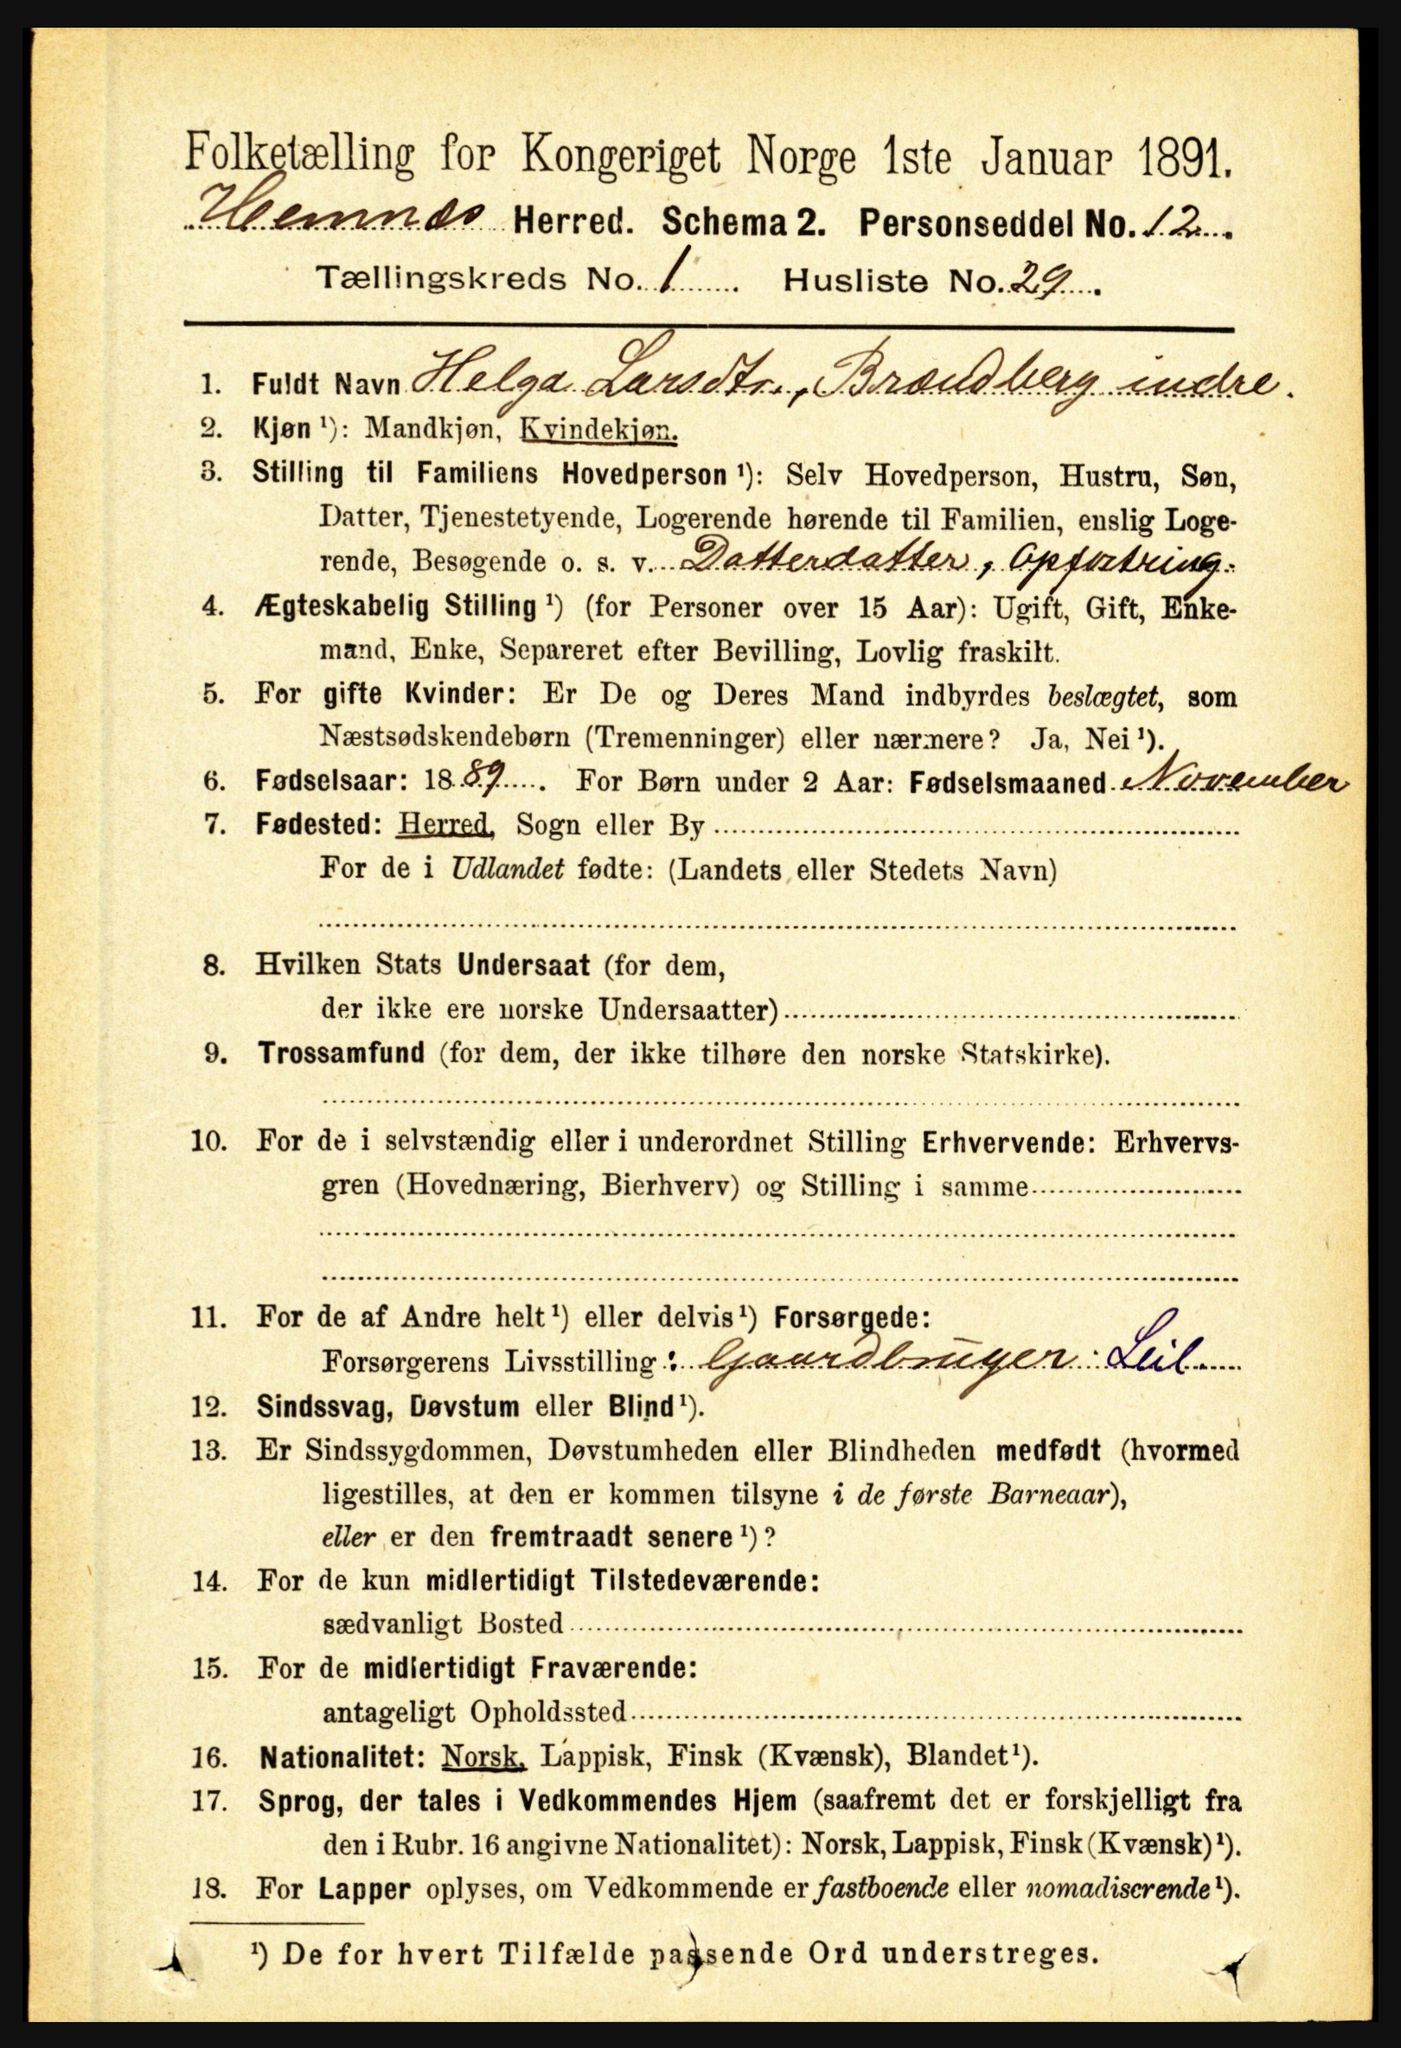 Folketælling for Kongeriget Norge 1ste Januar 1891.
Hemnæs Herred. Schema 2. Personseddel No. 12.
Tællingskreds No. 1. Husliste No. 29.
1. Fuldt Navn Helga Larsdtr., Brændberg indre.
2. Kjøn ¹): Mandkjøn, Kvindekjøn.
3. Stilling til Familiens Hovedperson ¹): Selv Hovedperson, Hustru, Søn,
Datter, Tjenestetyende, Logerende hørende til Familien, enslig Loge-
rende, Besøgende o. s. v. Datterdatter, Opfostring.
4. Ægteskabelig Stilling ¹) (for Personer over 15 Aar): Ugift, Gift, Enke-
mand, Enke, Separeret efter Bevilling, Lovlig fraskilt.
5. For gifte Kvinder: Er De og Deres Mand indbyrdes beslægtet, som
Næstsødskendebørn (Tremenninger) eller nærmere? Ja, Nei ¹).
6. Fødselsaar: 1889. For Børn under 2 Aar: Fødselsmaaned November
7. Fødested: Herred, Sogn eller By
For de i Udlandet fødte: (Landets eller Stedets Navn)
8. Hvilken Stats Undersaat (for dem,
der ikke ere norske Undersaatter)
9. Trossamfund (for dem, der ikke tilhøre den norske Statskirke).
10. For de i selvstændig eller i underordnet Stilling Erhvervende: Erhvervs-
gren (Hovednæring, Bierhverv) og Stilling i samme
11. For de af Andre helt ¹) eller delvis ¹) Forsørgede:
Forsørgerens Livsstilling: Gaardbruger Leil.
12. Sindssvag, Døvstum eller Blind ¹).
13. Er Sindssygdommen, Døvstumheden eller Blindheden medfødt (hvormed
ligestilles, at den er kommen tilsyne i de første Barneaar),
eller er den fremtraadt senere ¹)?
14. For de kun midlertidigt Tilstedeværende:
sædvanligt Bosted
15. For de midlertidigt Fraværende:
antageligt Opholdssted
16. Nationalitet: Norsk, Lappisk, Finsk (Kvænsk), Blandet ¹).
17. Sprog, der tales i Vedkommendes Hjem (saafremt det er forskjelligt fra
den i Rubr. 16 angivne Nationalitet): Norsk, Lappisk, Finsk (Kvænsk) ¹).
18. For Lapper oplyses, om Vedkommende er fastboende eller nomadiserende ¹).
¹) De for hvert Tilfælde passende Ord understreges.